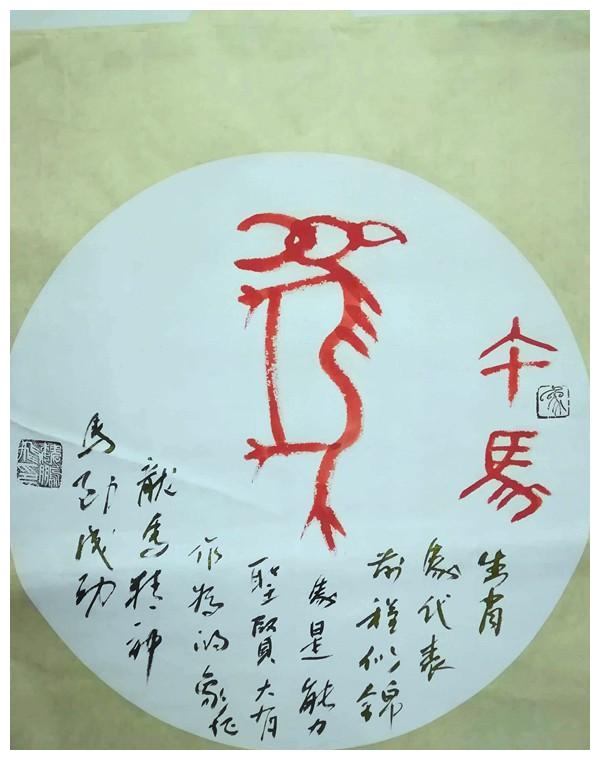 午馬
生肖
代表
前程似錦
是能力
聖賢大有
作為的象征
龍馬精神
馬到成功